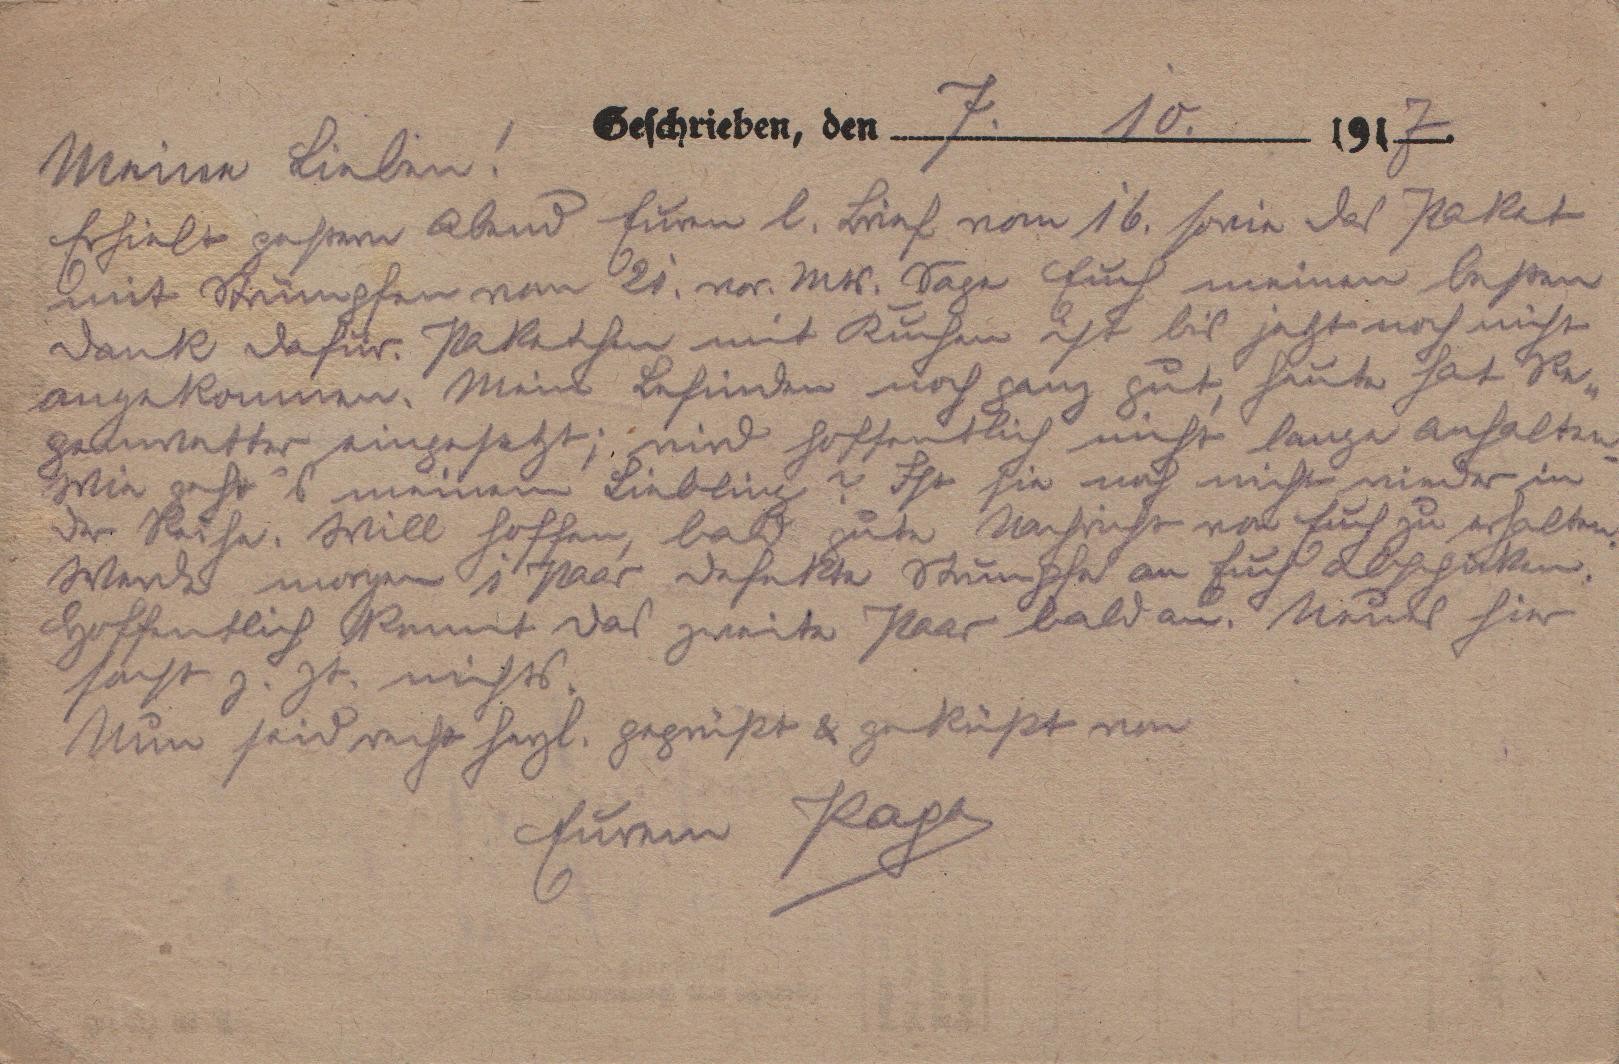 Geschrieben, den 7. 10. 1917.
Meine Lieben!
Erhielt gestern Abend Euren l. Brief vom 16. sowie das Paket
mit Strümpfen vom 21. vor. Mts. Sage Euch meinen besten
Dank dafür. Paketchen mit Kuchen ist bis jetzt noch nicht
angekommen. Mein Befinden noch ganz gut, heute hat Re-
genwetter eingesetzt; wird hoffentlich nicht lange anhalten.
Wie geht's meinem Liebling? Ist sie noch nicht wieder in
der Reihe. Will hoffen, bald gute Nachricht von Euch zu erhalten.
Werde morgen 1 Paar defekte Strümpfe an Euch abschicken.
Hoffentlich kommt das zweite Paar bald an. Neues hier
sonst z. Zt. nichts.
Nun seid recht herzl. gegrüßt & geküßt von
Eurem Papa